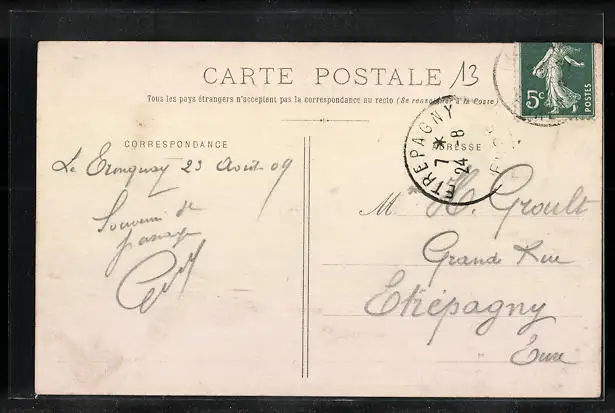 CARTE POSTALE
13
Tous les pays étrangers n'acceptent pas la correspondance au recto (Se renseigner à la Poste)
5c
POSTES
CORRESPONDANCE
ADRESSE
ETREPAGNY
7 *
24 -8
Le Tronquay 23 Août 09
Souvenir de
passage
M H. Groult
Grande Rue
Etrépagny
Eure